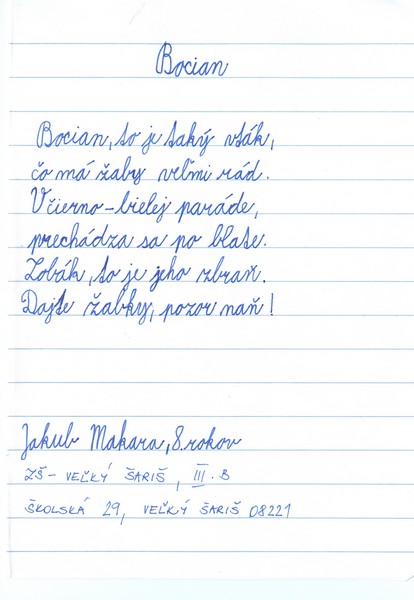 Bocian
Bocian, to je taký vták,
čo má žaby veľmi rád.
V čierno-bielej paráde,
prechádza sa po blate.
Zobák, to je jeho zbraň.
Dajte žabky, pozor naň!
Jakub Makara, 8. rokov
ZŠ - VEĽKÝ ŠARIŠ, III. B
ŠKOLSKÁ 29, VEĽKÝ ŠARIŠ 08221